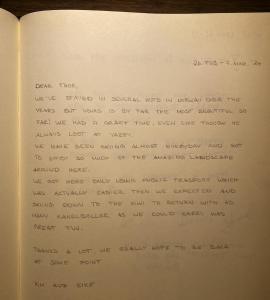 26 FEB - 2. MAR. '24
DEAR THOR,
WE'VE STAYED IN SEVERAL HUTS IN NORWAY OVER THE
YEARS BUT YOURS IS BY FAR THE MOST BEAUTIFUL SO
FAR! WE HAD A GREAT TIME, EVEN THOUGH HE
ALWAYS LOST AT YATZY.
WE HAVE BEEN SKIING ALMOST EVERYDAY AND GOT
TO ENJOY SO MUCH OF THE AMAZING LANDSCAPE
AROUND HERE.
WE GOT HERE ONLY USING PUBLIC TRANSPORT WHICH
WAS ACTUALLY EASIER THEN WE EXPECTED AND
SKIING DOWN TO THE KIWI TO RETURN WITH AS
MANY KANELBOLLAR AS WE COULD CARRY WAS
GREAT FUN.
THANKS A LOT, WE REALLY HOPE TO BE BACK
AT SOME POINT
KIM AND EIKE